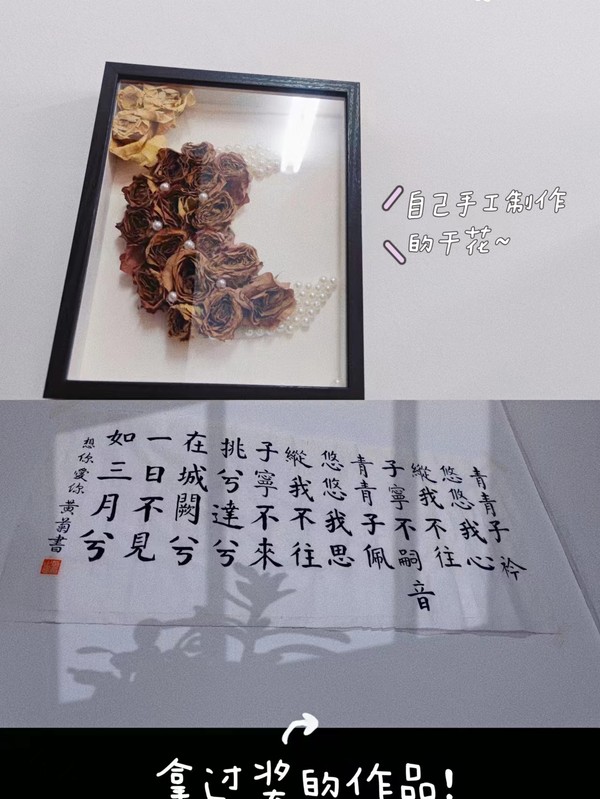 自己手工制作
的干花~
青青子衿
悠悠我心
縱我不往
子寧不嗣音
青青子佩
悠悠我思
縱我不往
子寧不來
挑兮達兮
在城闕兮
一日不見
如三月兮
想你愛你 黄菊書
拿过奖的作品!